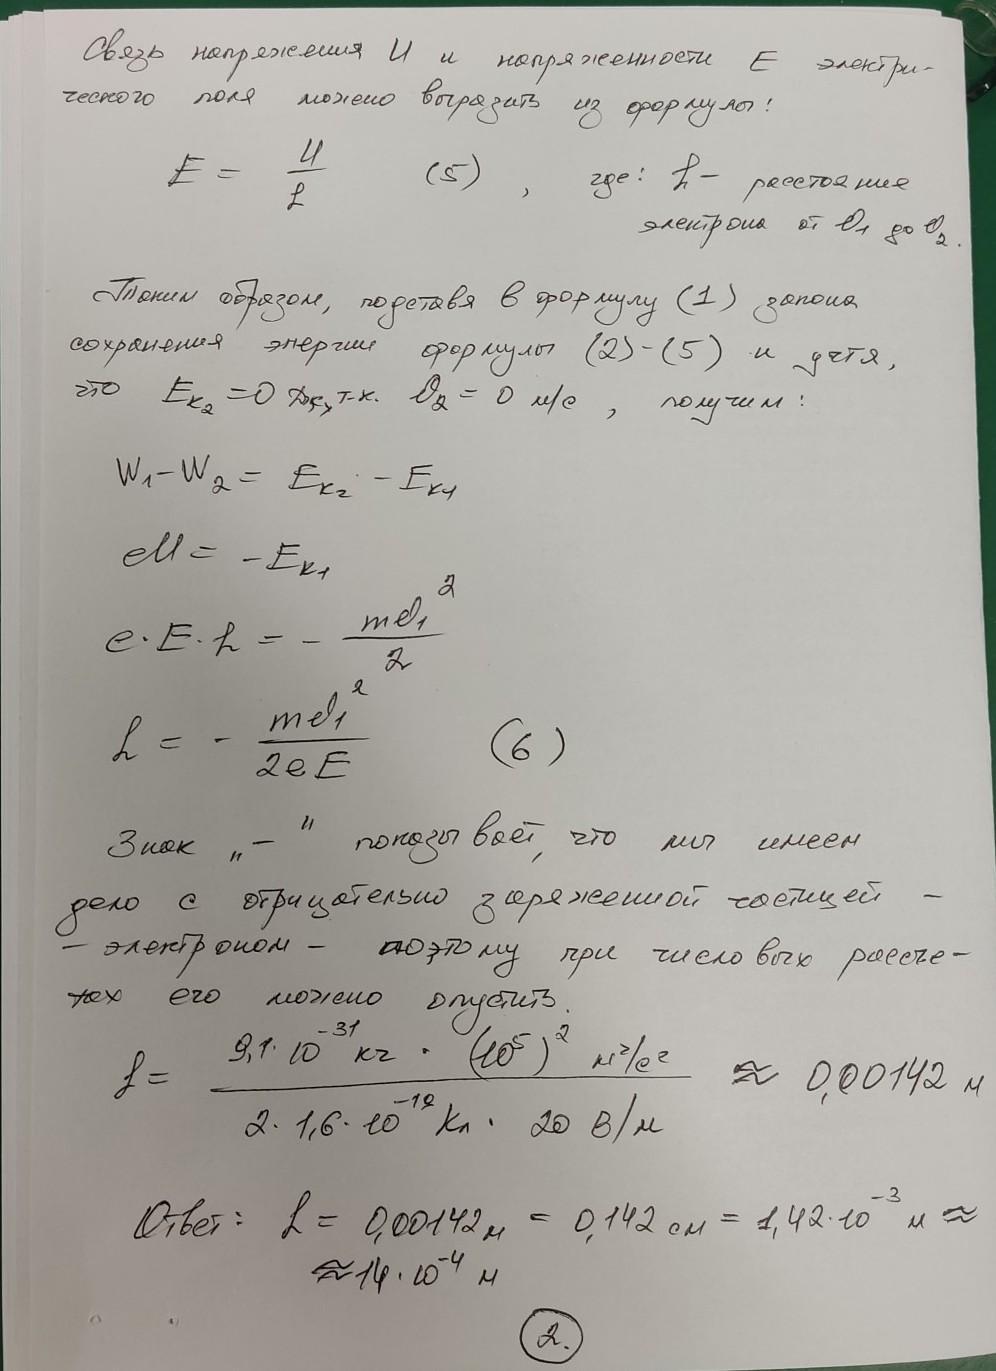 Связь напряжения U и напряженности E электри-
ческого поля можно выразить из формулы:
E = U/L (5), где: L – расстояние
электрона от υ₁ до υ₂.
Таким образом, подставя в формулу (1) закона
сохранения энергии формулы (2)-(5) и учтя,
что Eк₂ = 0 Дж, т.к. υ₂ = 0 м/с, получим:
W₁ – W₂ = Eк₂ – Eк₁
eU = – Eк₁
e · E · L = – mυ₁²/2
L = – mυ₁²/2eE (6)
Знак „–" показывает, что мы имеем
дело с отрицательно заряженной частицей –
– электроном – поэтому при числовых рассче-
тах его можно опустить.
L = 9,1·10⁻³¹ кг · (10⁵)² м²/с² / 2·1,6·10⁻¹⁹ Кл · 20 В/м ≈ 0,00142 м
Ответ: L = 0,00142 м = 0,142 см = 1,42·10⁻³ м ≈
≈ 14·10⁻⁴ м
2.